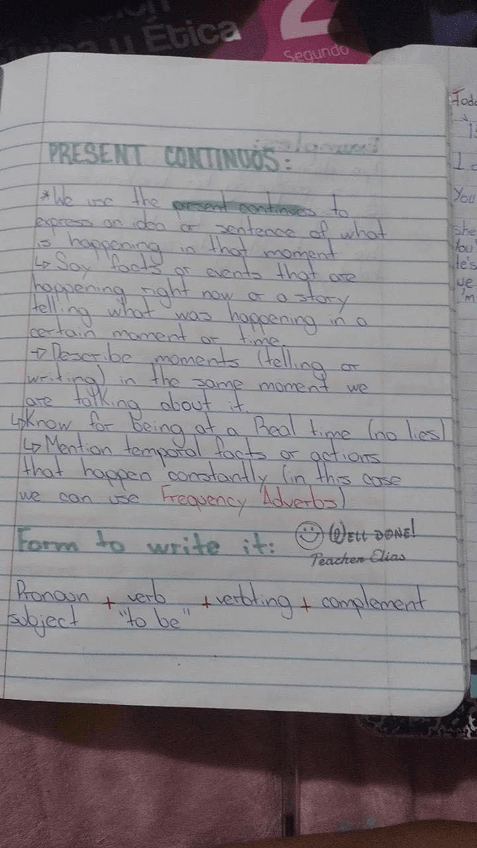 Cívica y Ética 2
Segundo
PRESENT CONTINUOS:
*We use the present continuos to
express an idea or sentence of what
is happening in that moment
↳ Say facts or events that are
happening right now or a story
telling what was happening in a
certain moment or time.
→ Describe moments (telling or
writing) in the same moment we
are talking about it.
↳Know for being at a Real time (no lies)
↳ Mention temporal facts or actions
that happen constantly (in this case
we can use Frequency Adverbs)
Form to write it:
WELL DONE!
Teacher Elias
Pronoun + verb + verb+ing + complement
subject "to be"
You
she
You
He's
we
I'm